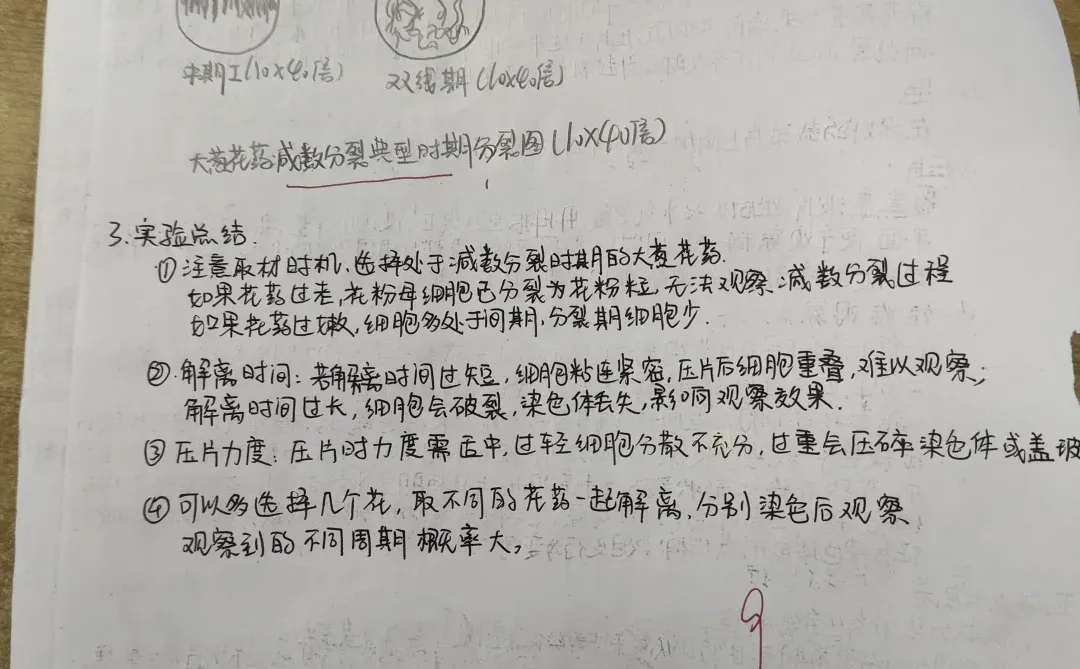 中期I(10×40倍)
双线期(10×40倍)
大葱花药减数分裂典型时期分裂图(10×40倍)
3.实验总结.
①注意取材时机、选择处于减数分裂时期的大葱花药.
如果花药过老,花粉母细胞已分裂为花粉粒,无法观察减数分裂过程
如果花药过嫩,细胞多处于间期,分裂期细胞少.
②.解离时间:若解离时间过短,细胞粘连紧密,压片后细胞重叠,难以观察;
解离时间过长,细胞会破裂,染色体丢失,影响观察效果.
③压片力度:压片时力度需适中,过轻细胞分散不充分,过重会压碎染色体或盖玻
④可以多选择几个花,取不同的花药一起解离,分别染色后观察
观察到的不同周期概率大。